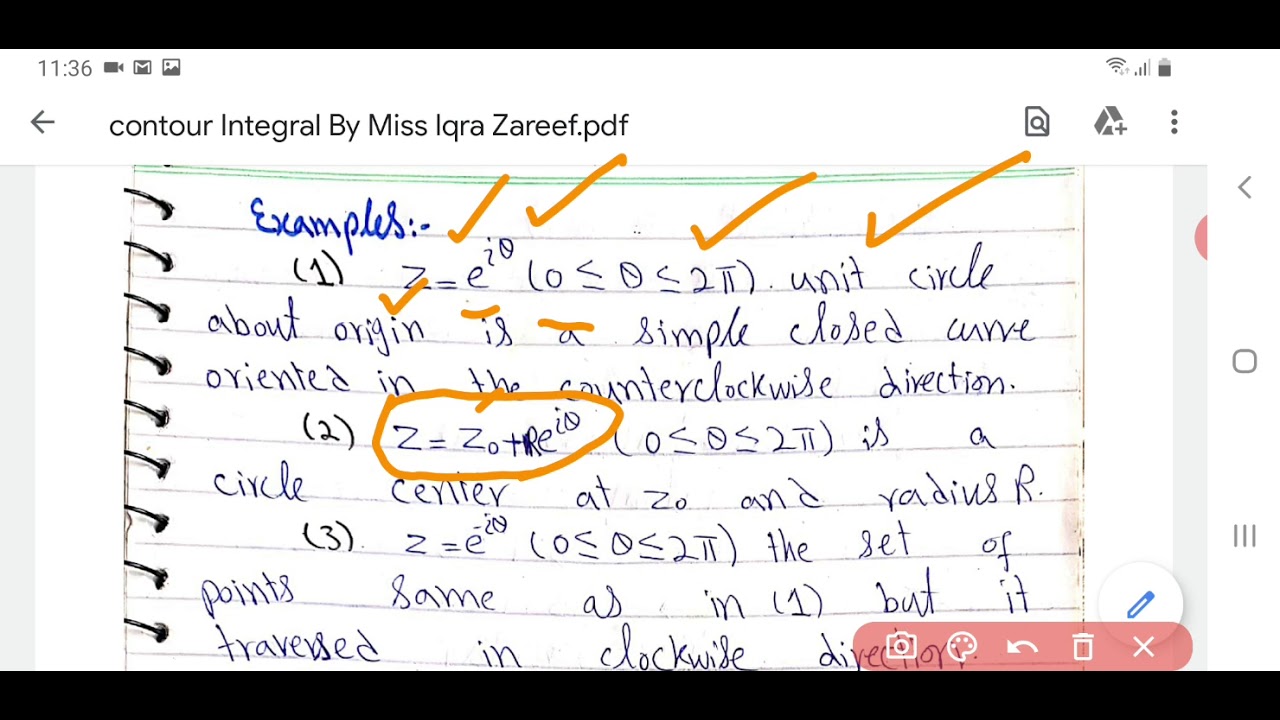 11:36
contour Integral By Miss Iqra Zareef.pdf
Examples:-
(1) z = e^{iθ} (0 ≤ θ ≤ 2π). unit circle
about origin is a simple closed curve
oriented in the counterclockwise direction.
(2) z = z₀ + Re^{iθ} (0 ≤ θ ≤ 2π) is a
circle center at z₀ and radius R.
(3). z = e^{-iθ} (0 ≤ θ ≤ 2π) the set of
points same as in (1) but it
traversed in clockwise direction.